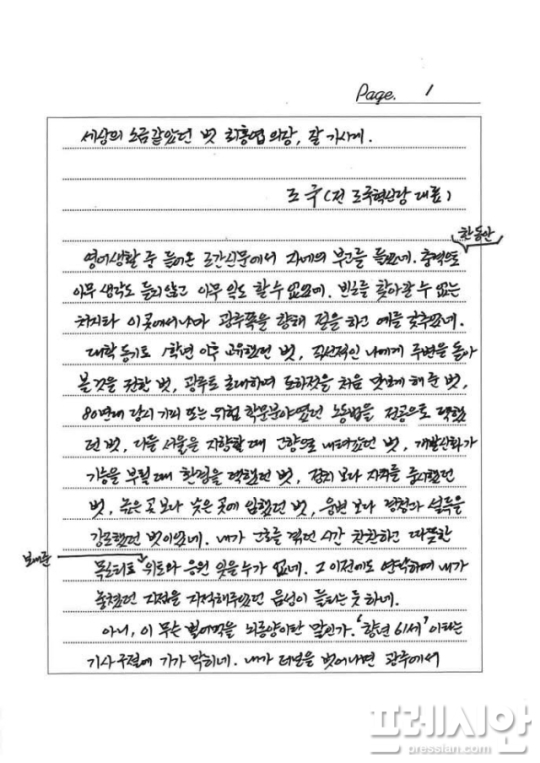 Page. 1
세상의 소금같았던 벗 최홍엽 의장, 잘 가시게.
조 국 (전 조국혁신당 대표)
한동안
영어생활 중 들어온 조간신문에서 자네의 부고를 들었네. 충격으로
아무 생각도 들지 않고 아무 일도 할 수 없었네. 빈소를 찾아갈 수 없는
처지라 이곳에서나마 광주쪽을 향해 절을 하고 예를 갖추었네.
대학 동기로 1학년 이후 교유했던 벗, 직선적인 나에게 주변을 돌아
볼 것을 권한 벗, 광주로 초대하여 홍어전을 처음 맛보게 해 준 벗,
80년대 당시 기피 또는 위험 학문분야였던 노동법을 전공으로 택했
던 벗, 다들 서울을 지향할 때 고향으로 내려갔던 벗, 개발신화가
기승을 부릴 때 환경을 택했던 벗, 정치 보다 자치를 중시했던
벗, 높은 곳 보다 낮은 곳에 임했던 벗, 웅변 보다 경청과 설득을
강조했던 벗이었네. 내가 고초를 겪던 시간 찬찬하고 따뜻한
보내준
목소리로 위로와 응원 잊을 수가 없네. 그 이전에도 연락하여 내가
놓쳤던 지점을 지적해주었던 음성이 들리는 듯 하네.
아니, 이 무슨 벌어먹을 뇌종양이란 말인가. '향년 61세' 이라는
기사 구절에 기가 막히네. 내가 이곳을 벗어나면 광주에서
프레시안
pressian.com